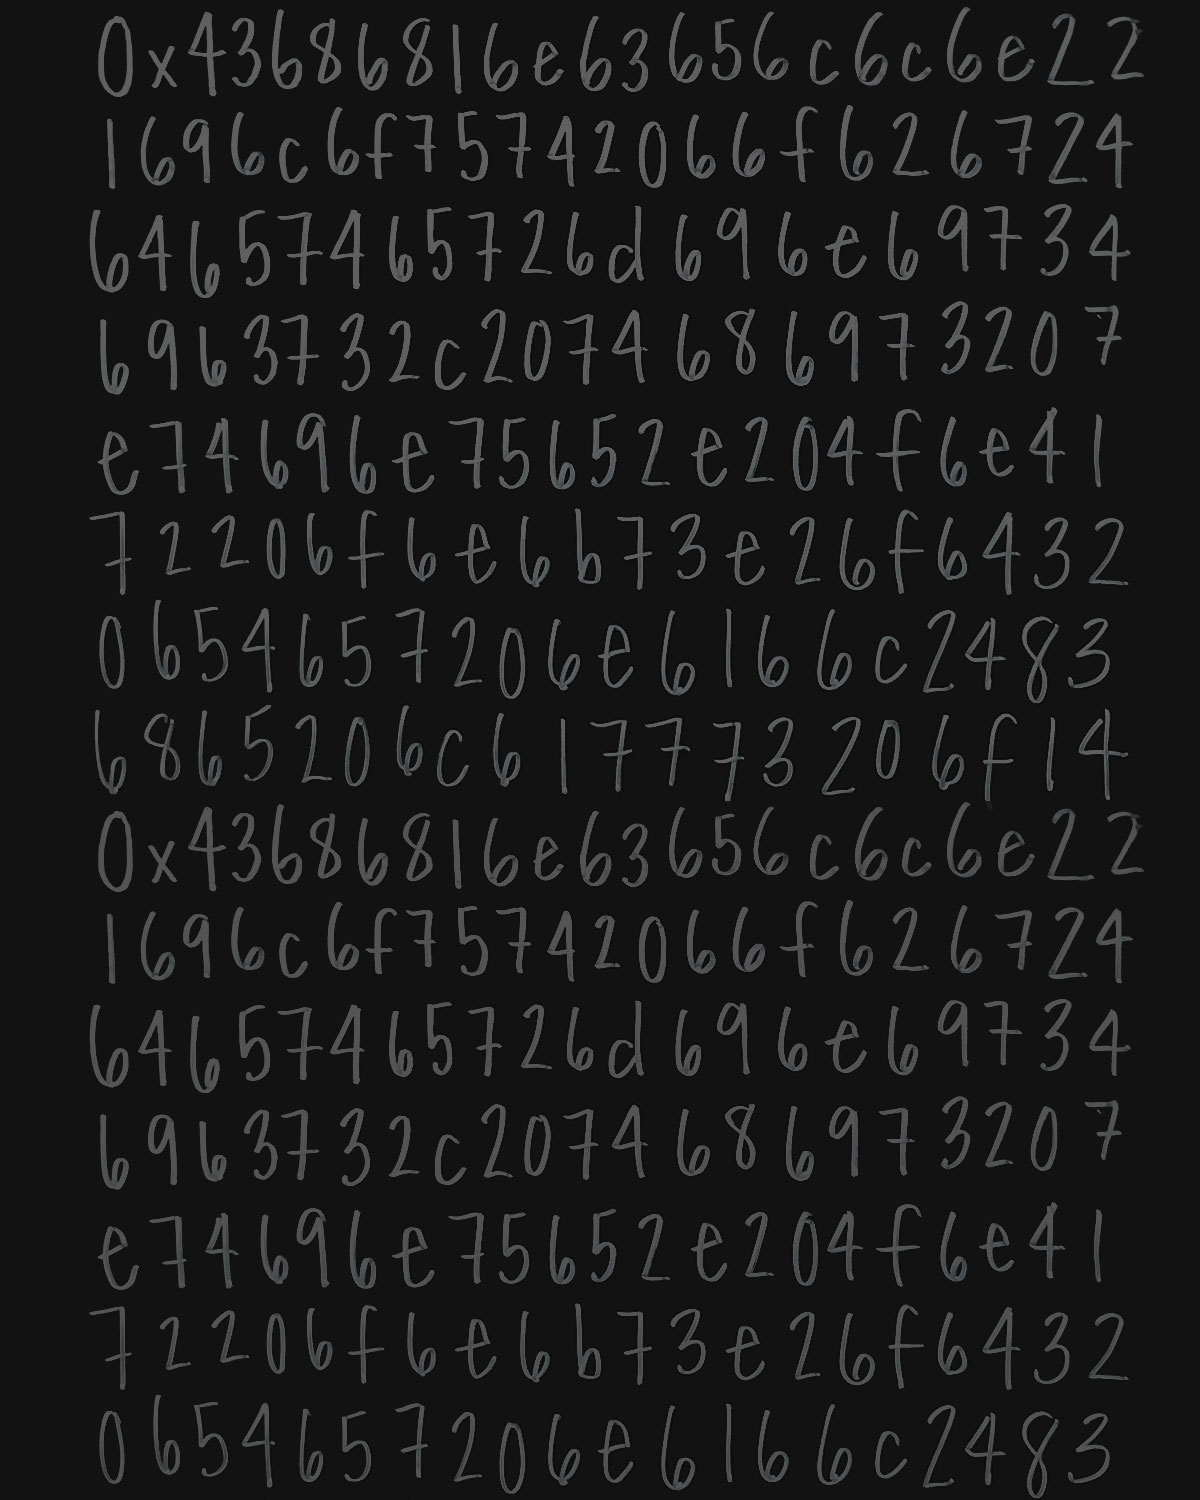 0x43686816e63656c6c6e22
1696c6f75742066f626724
64657465726d696e69734
6963732c207468697320 7
e74696e75652e204f6e41
72206f6e6b73e26f6432
0654657206e6166c2483
6865206c617773206f14
0x43686816e63656c6c6e22
1696c6f75742066f626724
64657465726d696e69734
6963732c207468697320 7
e74696e75652e204f6e41
72206f6e6b73e26f6432
0654657206e6166c2483